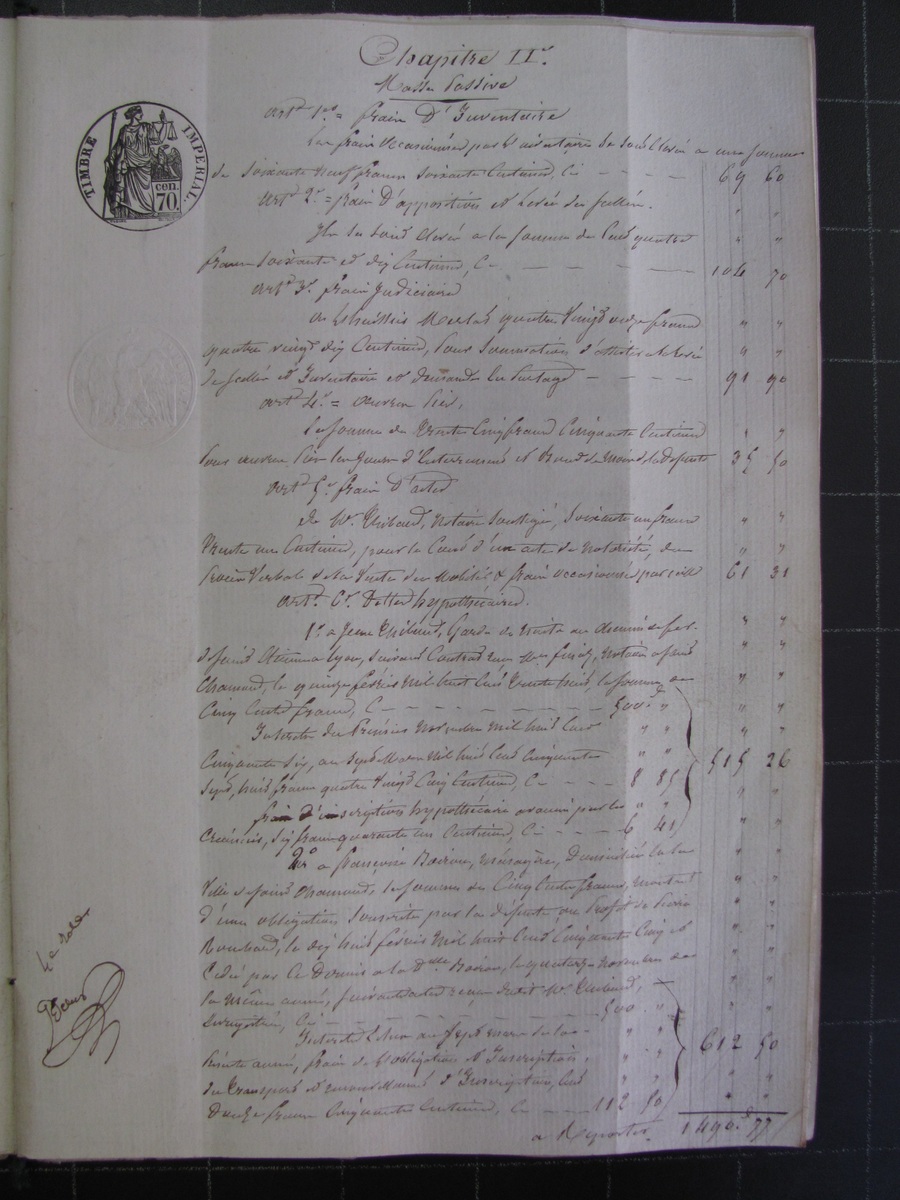 Chapitre II.
Masse Passive
TIMBRE IMPERIAL.
cen. 70.
art. 1er = frais D'Inventaire
Les frais occasionnés par l'inventaire se sont élevés a une somme
de soixante neuf francs soixante Centimes, Ci - - - - - 69 60
art. 2e = frais D'apposition et Levée des scellés.
Ils se sont élevés a la somme de Cent quatre
francs soixante et dix Centimes, Ci - - - - - 104 70
art. 3e frais Judiciaires
quatre vingt onze francs
quatre vingt dix Centimes, pour sommation d'assister a la levée
de scellés et Inventaire et demande en Partage - - - - - 91 90
art. 4e =
La somme de trente Cinq francs Cinquante Centimes
35 50
art. 5e frais d'actes
De Me Thibaud, Notaire soussigné, soixante un francs
trente un Centimes, pour le Cout d'un acte de notoriété, du
Procès Verbal de la Vente du Mobilier & frais occasionnés par icelle 61 31
art. 6e Dettes hypothécaires.
1° a Jean Garde de au chemin de fer
de Saint Etienne a Lyon, suivant Contrat reçu Me notaire a Saint
Chamond, le quinze février mil huit Cent trente huit, la somme de
Cinq Cents francs, Ci - - - - - 500 "
Intérêts du Premier Novembre mil huit Cent
Cinquante six, au sept Mars mil huit Cent Cinquante
sept, huit francs quatre vingt Cinq Centimes, Ci - - - - 8 85 515 26
frais d'inscription hypothécaire avancés par le
Créancier, six francs quarante un Centimes, Ci - - - - 6 41
2° a Françoise Boiron, ménagère, Domiciliée en la
Ville de Saint Chamond, la somme de Cinq Cents francs, montant
d'une obligation souscrite par la défunte au Profit de Pierre
le dix huit février Mil huit Cent Cinquante Cinq et
Cédée par Ce dernier a la Dlle Boiron, le quatorze Novembre de
la même année, suivant actes reçus dudit Me Thibaud,
Ci - - - - - 500 "
Intérêts échus au sept mars de la
Présente année, frais de l'obligation et d'Inscription, 612 50
du transport et d'Inscription, Cent
Douze francs Cinquante Centimes, Ci - - - 112 50
a Reporter. 1490. 77
4e rôle